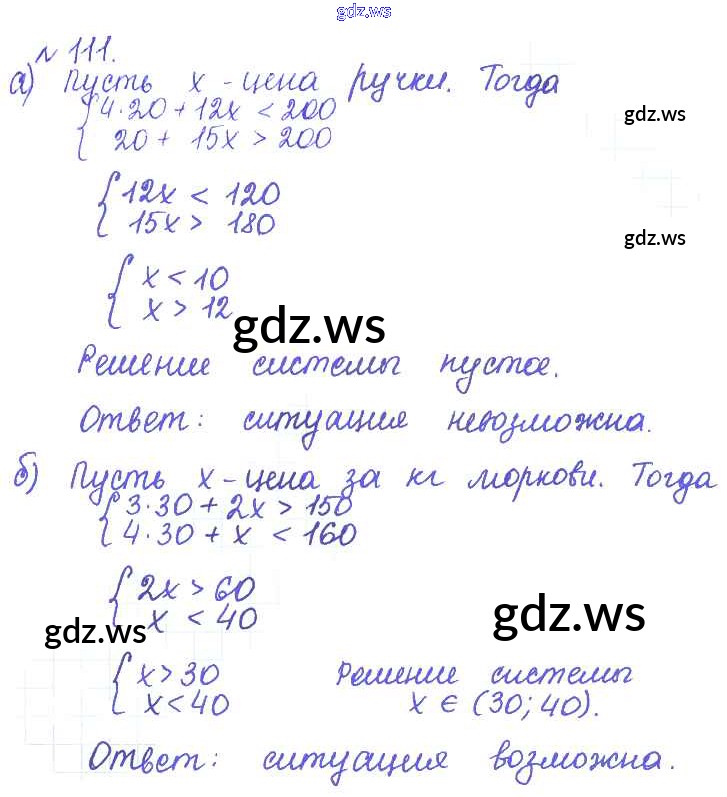 gdz.ws
№ 111.
а) Пусть x - цена ручки. Тогда
{ 4·20 + 12x < 200
20 + 15x > 200
gdz.ws
{ 12x < 120
15x > 180
gdz.ws
{ x < 10
x > 12
gdz.ws
Решение системы пустое.
Ответ: ситуация невозможна.
б) Пусть x - цена за кг моркови. Тогда
{ 3·30 + 2x > 150
4·30 + x < 160
{ 2x > 60
x < 40
gdz.ws
gdz.ws
{ x > 30
x < 40
Решение системы
x ∈ (30; 40).
Ответ: ситуация возможна.